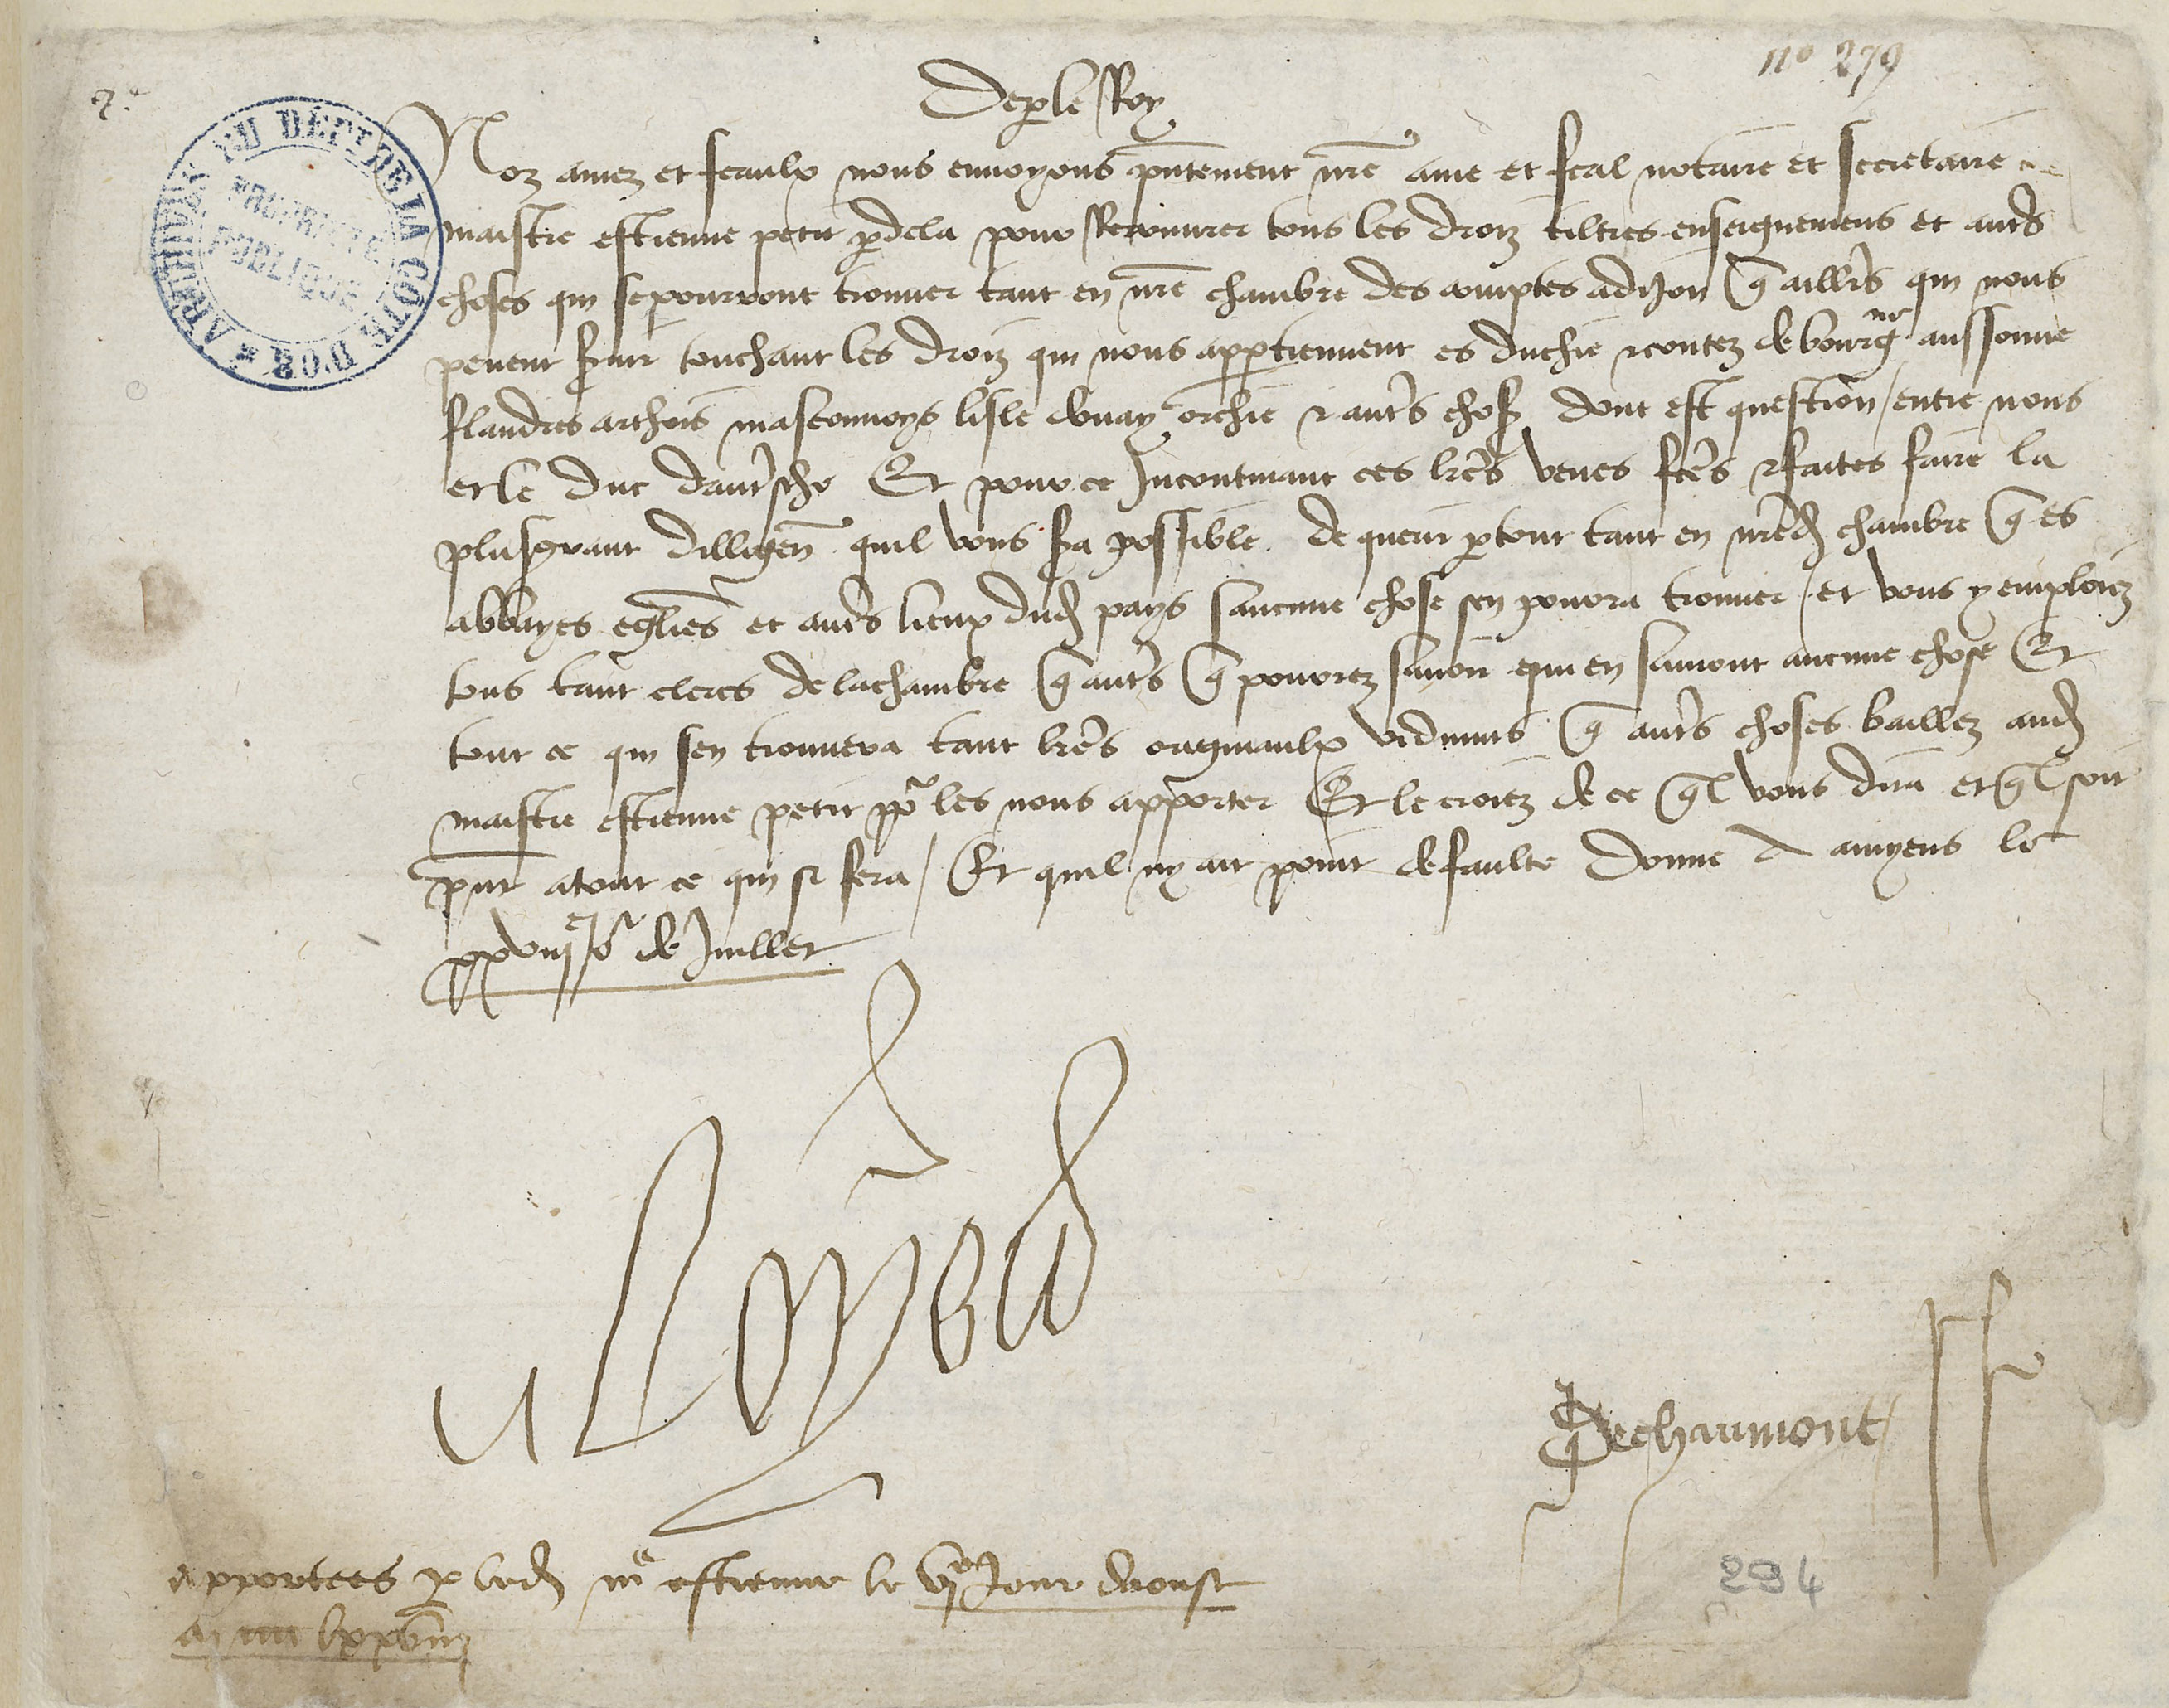 no 279
De p le Roy
Noz amez et feaulx nous envoyons pntement nre ame et feal notaire et secretaire
maistre estienne petit p dela pour Recouvrer tous les droiz tiltres enseignemens et autrs
choses qui se pourront trouver tant en nre chambre des comptes a dijon q aillrs qui nous
pevent svir touchant les droiz qui nous appartiennent es duchie & contez de bourgne aussonne
flandres arthois masconnoys lisle douay orchie & autrs choses dont est question / entre nous
et le duc dautrische Et pour ce Incontinant ces lres veues fetes & faites faire la
plus grant dilligen quil vous sa possible de querir p tout tant en nred chambre q es
abbayes eglies et autrs lieux dud pays saucune chose sen pourra trouver / et vous y emploiez
tous tant clercs de la chambre q autrs q pourrez savoir qui en sauront aucune chose Et
tout ce qui sen trouvera tant lres originaulx vidimus q autrs choses baillez aud
maistre estienne petit pr les nous apporter Et le croiez de ce ql vous dira et ql soit
pnt a tout ce qui se fera / Et quil ny ait point de faulte Donne a amyens le
xxviiie Jor de Juillet
Loys
De chaumont
apportees p led me estienne le vie Jour daoust
lxxviii
294
ARCHIVES DU DÉPT DE LA COTE D'OR
PROPRIÉTÉ
PUBLIQUE